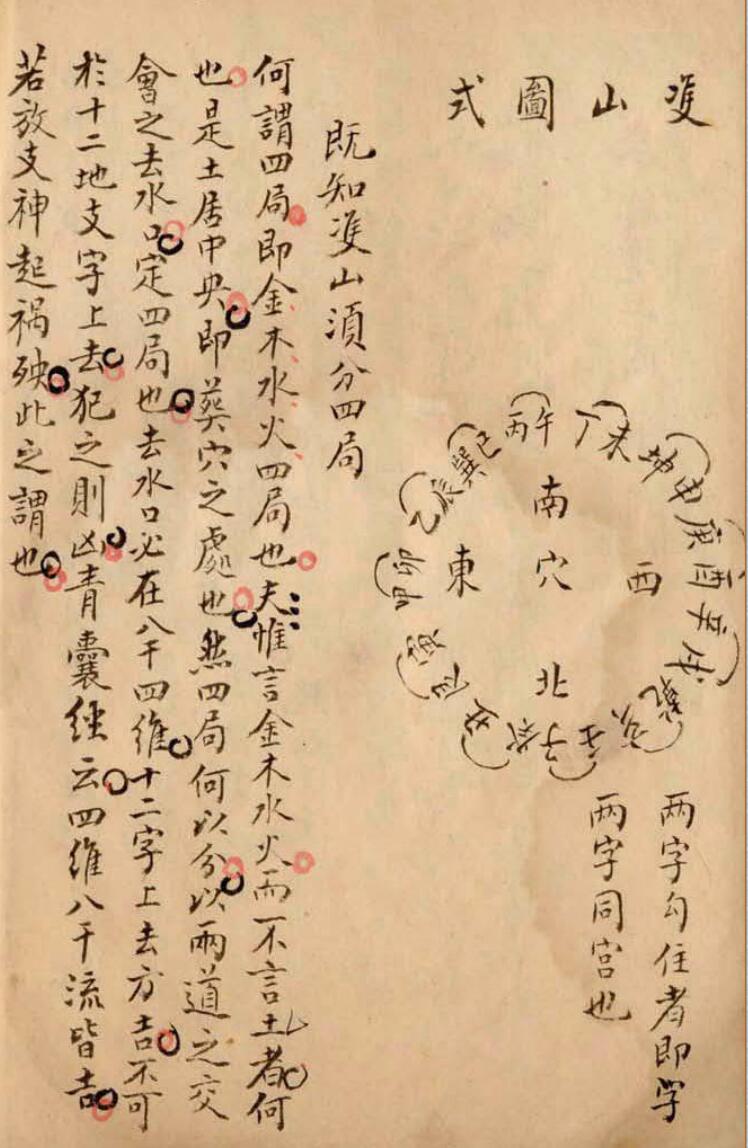 雙山圖式
丙午
丁未
坤申
庚酉
辛戌
乾亥
壬子
癸丑
艮寅
甲卯
乙辰
巽巳
南
西
穴
東
北
两字勾住者即字
两字同宫也
既知雙山須分四局
何謂四局即金木水火四局也夫惟言金木水火而不言土者何
也是土居中央即葬穴之處也然四局何以分以兩道之交
會之去水口定四局也去水口必在八干四維十二字上去方吉不可
於十二地支字上去犯之則凶青囊經云四維八干流皆吉
若放支神起禍殃此之謂也